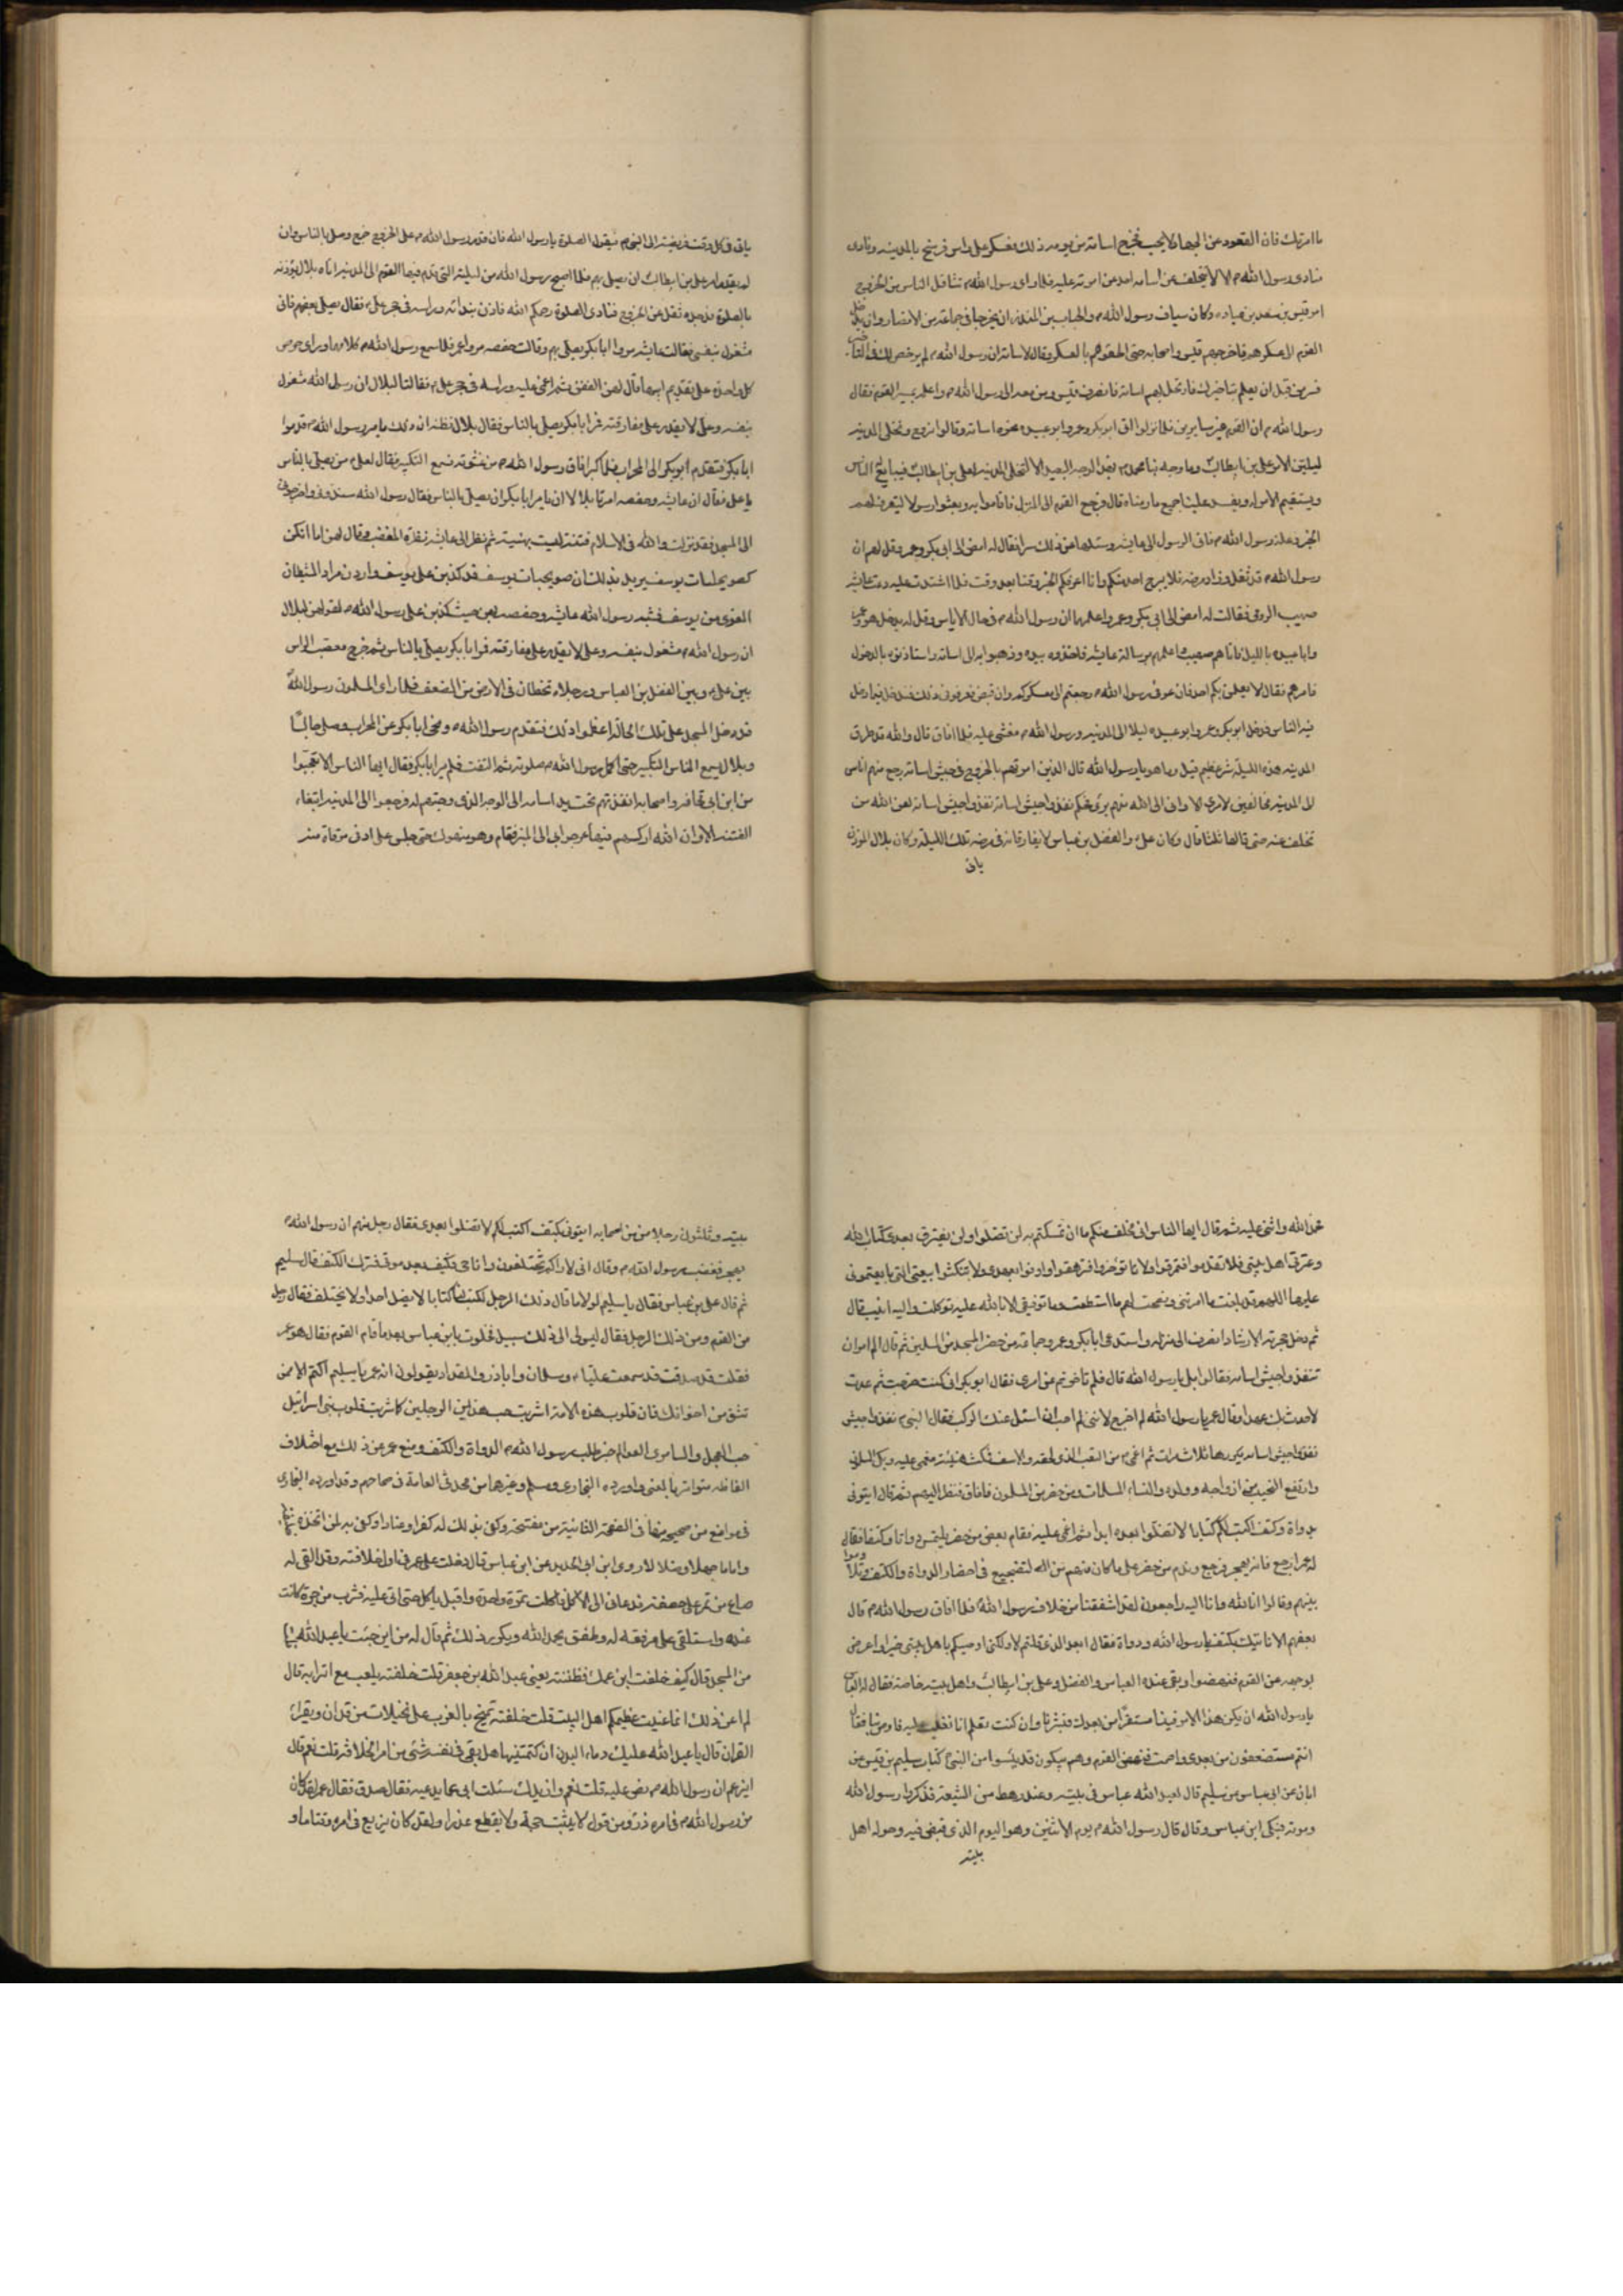 ما امرتك فان القعود عن الجهاد لا يجب فخرج اسامة من يومه ذلك فعسكر على راس فرسخ بالمدينه ونادى
منادى رسول الله الا لا يتخلف عن اسامه احد عن امرته عليه فلما راى رسول الله تثاقل الناس من الخروج
امر قيس بن سعد بن عباده وكان سياف رسول الله والحباب بن المنذر ان يخرجا فى جماعة من الانصار
القوم الى عسكرهم فاخرجهم قيس واصحابه حتى الحقوهم بالعسكر وقال لاسامة ان رسول الله لم يرخص لك فى
فسر من قبل ان يعلم تاخيرك فارتحل بهم اسامة فانصرف قيس ومن معه الى رسول الله واعلمه بمسير القوم فقال
رسول الله ان القوم غير سايرين فلما نزلوا اتى ابو بكر وعمر وابو عبيده نحو اسامة وقالوا نرجع ونخلى المدينه
ليلبثن الامر على بن ابيطالب وما وجه بنا محمد هذا الوجه البعيد الا لتخلى المدينه لعلى بن ابيطالب فيبايع الناس
ويستقيم الامر له ويفسد علينا جميع ما رمناه قال فرجع القوم الى المنزل فاقاموا به وبعثوا رسولا ليتعرف لهم
الخبر فى علة رسول الله فاتى الرسول الى عايشه وسئلها عن ذلك سرا فقال له امض الى ابى بكر وعمر وقل لهم ان
رسول الله قد ثقل وزاد مرضه فلا يبرح احد منكم وانا اعرفكم الخبر وقتا بعد وقت فلما اشتدت عليه دعت عايشه
صهيب الرومى فقالت له امض الى ابى بكر وعمر واعلمهما ان رسول الله فى حال الاياس وقل له يدخل هو وعمر
وابا عبيده بالليل فاتاهم صهيب فاعلمهم برسالة عايشه فاخذوه بيده وذهبوا به الى اسامه واستاذنوه بالدخول
فامرهم فقال لا يعلمن بكم احد فان عوفى رسول الله رجعتم الى معسكركم وان قبض تعرفونى ذلك فندخل فيما دخل
فيه الناس فدخل ابو بكر وعمر وابو عبيده ليلا الى المدينه ورسول الله مغشى عليه فلما افاق قال والله قد طرق
المدينه هذه الليلة شر عظيم قيل وما هو يا رسول الله قال الذين امرتهم بالخروج فى جيش اسامة رجع منهم اناس
الى المدينه مخالفين لامرى الا وانى الى الله منهم برى ويحكم نفذوا جيش اسامة نفذوا جيش اسامة لعن الله من
تخلف عنه حتى قالها ثلثا قال وكان على والفضل بن عباس لا يفارقانه فى مرضه تلك الليلة وكان بلال الموذن
ياتى
ياتى فى كل وقت فريضه الى النبى فيقول الصلوة يا رسول الله فان قدر رسول الله على الخروج خرج وصلى بالناس وان
لم يقدر امر على بن ابيطالب ان يصلى بهم فلما اصبح رسول الله من ليلته التى قدم فيها القوم الى المدينه اتاه بلال يؤذنه
بالصلوة فوجده ثقل عن الخروج فنادى الصلوة رحمكم الله فاذن بندائه وراسه فى حجر على فقال يصلى بعضهم فانى
مشغول بنفسى فقالت عايشه مروا ابا بكر يصلى بهم وقالت حفصه مروا عمر فلما سمع رسول الله كلامهما وراى حرص
كل واحدة على تقديم ابيها قال لهن اكففن ثم اغمى عليه وراسه فى حجر على فقالتا لبلال ان رسول الله مشغول
بنفسه وعلى لا يقدر على مفارقته فمر ابا بكر يصلى بالناس فقال بلال فظن ان ذلك بامر رسول الله قدموا
ابا بكر فتقدم ابو بكر الى المحراب فلما كبر افاق رسول الله من غشوته فسمع التكبير فقال لعلى من يصلى بالناس
يا على فقال ان عايشه وحفصه امرتا بلالا ان يامر ابا بكر ان يصلى بالناس فقال رسول الله سندونى واخرجونى
الى المسجد فقد نزلت والله فى الاسلام فتنة ليست بهينة ثم نظر الى عايشه نظرة المغضب وقال لهن اما انكن
كصويحبات يوسف يريد بذلك ان صويحبات يوسف قد كذبن على يوسف واردن مراد الشيطان
الغوى من يوسف فشبه رسول الله عايشه وحفصه بهن حيث كذبن على رسول الله لقولهن لبلال
ان رسول الله مشغول بنفسه وعلى لا يقدر على مفارقته فمر ابا بكر يصلى بالناس ثم خرج معصب الراس
بين على وبين الفضل بن العباس ورجلاه تخطان فى الارض من الضعف فلما راى المسلمون رسول الله
قد دخل المسجد على تلك الحالة اعظموا ذلك فتقدم رسول الله ونحى ابا بكر عن المحراب وصلى جالسا
وبلال يسمع الناس التكبير حتى اكمل رسول الله صلوته ثم التفت فلم ير ابا بكر فقال ايها الناس الا تعجبوا
من ابن ابى قحافه واصحابه انفذتهم تحت يد اسامه الى الوجه الذى وجهتهم له فرجعوا الى المدينه ابتغاء
الفتنه الا وان الله اركسهم فيها عرجوا بى الى المنبر فقام وهو متهوك حتى جلس على ادنى مرقاة منه
فحمد الله واثنى عليه ثم قال ايها الناس انى مخلف فيكم ما ان تمسكتم به لن تضلوا ولن يفترق بعدى كتاب الله
وعترتى اهل بيتى فلا تقدموا فتمرقوا ولا تاخروا فتزهقوا واوفوا بعهدى ولا تنكثوا بيعتى التى بايعتمونى
عليها اللهم قد بلغت ما امرتنى ونصحت لهم ما استطعت وما توفيقى الا بالله عليه توكلت واليه انيب قال
ثم دخل حجرته الارشاد انصرف الى منزله واستدعى ابا بكر وعمر وجماعة من حضر المسجد من المسلمين ثم قال الم امر ان
تنفذوا جيش اسامه فقالوا بلى يا رسول الله قال فلم تاخرتم عن امرى فقال ابو بكر انى كنت خرجت ثم عدت
لاحدث بك عهدا وقال عمر يا رسول الله لم اخرج لاننى لم احب ان اسئل عنك الركب فقال النبى نفذوا جيش
نفذوا جيش اسامه يكررها ثلاث مرات ثم اغمى من التعب الذى لحقه والاسف فمكث هنيئة مغمى عليه وبكى المسلمون
وارتفع النحيب من ازواجه وولده والنساء المسلمات ومن حضر من المسلمون فافاق فنظر اليهم ثم قال ايتونى
بدواة وكتف اكتب لكم كتابا لا تضلوا بعده ابدا ثم اغمى عليه فقام بعض من حضر يلتمس دواتا وكتفا فقال
له عمر ارجع فانه يهجر فرجع وندم من حضر على ما كان منهم من التضجيع فى احضار الدواة والكتف وتلاوموا
بينهم وقالوا انا لله وانا اليه راجعون لقد اشفقنا من خلاف رسول الله فلما افاق رسول الله قال
بعضهم الا ناتيك بكتف يا رسول الله ودواة فقال ابعد الذى قلتم لا ولكنى اوصيكم باهل بيتى خيرا واعرض
بوجهه عن القوم فنهضوا وبقى عنده العباس والفضل وعلى بن ابيطالب واهل بيته خاصة فقال له العباس
يا رسول الله ان يكن هذا الامر فينا مستقرا من بعدك فبشرنا وان كنت تعلم انا نغلب عليه فاوص بنا فقال
انتم مستضعفون من بعدى واصمت فنهض القوم وهم يبكون قد يئسوا من النبى كتاب سليم بن قيس عن
ابان عن ابى عياس عن سليم قال لعبد الله عباس فى بيته وعنده رهط من الشيعة فذكروا رسول الله
وموته فبكى ابن عباس وقال قال رسول الله يوم الاثنين وهو اليوم الذى قبض فيه وحوله اهل
بيته
بيته وثلثون رجلا من اصحابه ايتونى بكتف اكتب لكم لا تضلوا بعدى فقال رجل منهم ان رسول الله
يهجر فغضب رسول الله وقال انى لاراكم تختلفون وانا حى فكيف بعد موتى فترك الكتف قال سليم
ثم قال على بن عباس فقال يا سليم لولا ما قال ذلك الرجل لكتب لنا كتابا لا يضل احد ولا يختلف فقال رجل
من القوم ومن ذلك الرجل فقال ليس لى الى ذلك سبيل فخلوت بابن عباس بعد ما قام القوم فقال هو عمر
فقلت قد صدقت قد سمعت عليا وسلمان وابا ذر والمقداد يقولون انه عمر يا سليم اكتم الا ممن
تثق من اخوانك فان قلوب هذه الامة اشربت حب هذين الرجلين كما شربت قلوب بنى اسرائيل
حب العجل والسامرى العوالم خبر طلب رسول الله الدواة والكتف ومنع عمر عن ذلك مع اختلاف
الفاظه متواتر بالمعنى واورده البخارى ومسلم وغيرهما من محدثى العامة فى صحاحهم وقد اورده البخارى
فى مواضع من صحيحه منها فى الصفحة الثانية من مفتتحه وكفى بذلك له كفرا وعنادا وكفى به لمن اتخذه
واماما جهلا وضلالا وروى ابن ابى الحديد عن ابن عباس قال دخلت على عمر فى اول خلافته وقد القى له
صاع من تمر على خصفة فدعانى الى الاكل فاكلت تمرة واحدة واقبل ياكل حتى اتى عليه فشرب من جرة كانت
عنده واستلقى على مرفقه له وطفق يحمد الله ويكرر ذلك ثم قال له من اين جئت يا عبد الله
من المسجد قال كيف خلفت ابن عمك فظننته يعنى عبد الله بن جعفر قلت خلفته يلعب مع اترابه قال
لم اعن ذلك انما عنيت عظيمكم اهل البيت قلت خلفته يمتح بالغرب على نخيلات من فدان ويقراء
القران قال يا عبد الله عليك دماء البدن ان كتمتنيها هل بقى فى نفسه شئ من امر الخلافة قلت نعم قال
ايزعم ان رسول الله نص عليه قلت نعم وازيدك سئلت ابى عما يدعيه فقال صدق فقال عمر لقد كان
من رسول الله فى امره ذرو من قول لا يثبت حجة ولا يقطع عذرا ولقد كان يزيع فى امره وقتا ما و